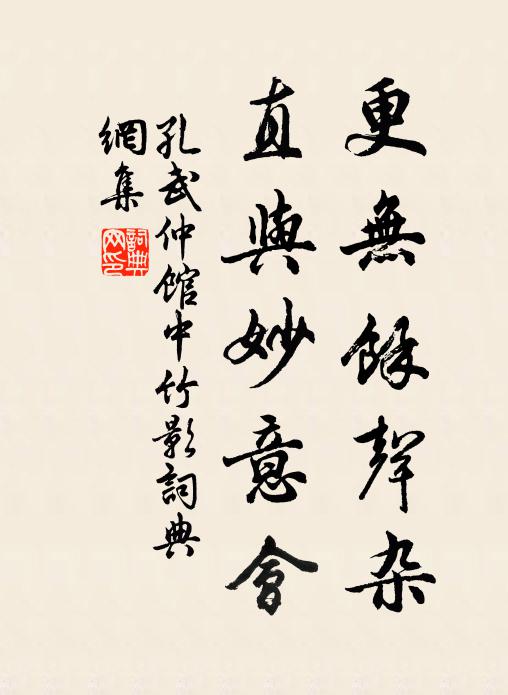 更無餘聲杂
直與妙意會
孔武仲館中竹影詞典
網集
詞典網印